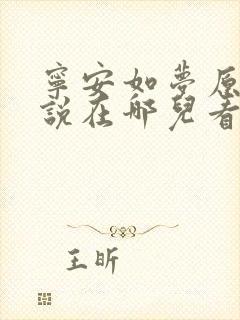 寧安如夢原
說在哪兒看
王昕